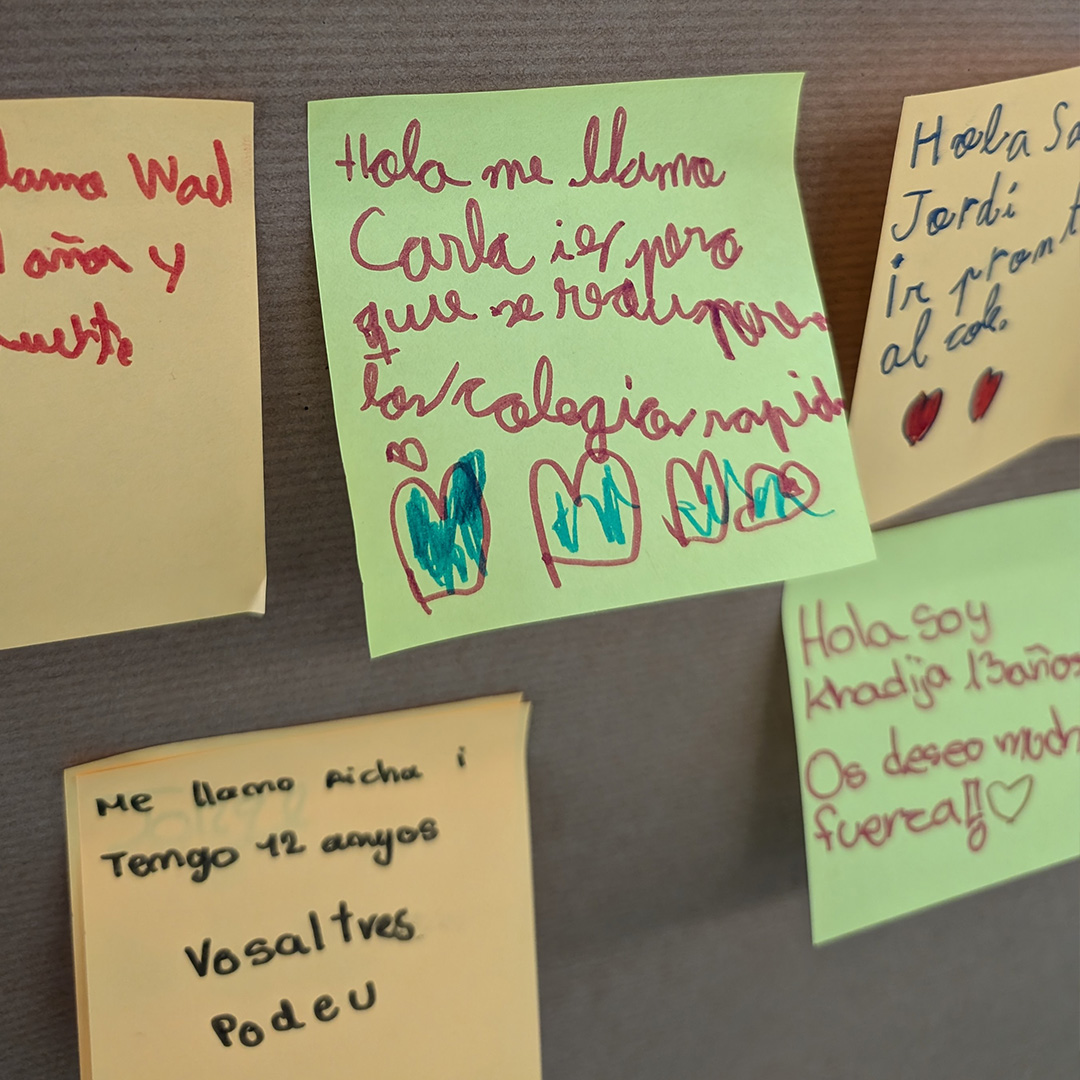 llama Wael
años y
Hola me llamo
Carla i es pero
que se recuperen
los colegios rapido
Hola
Jordi
ir pront
al cole.
Hola soy
khadija 13 años
Os deseo much
fuerza!!
Me llamo Aicha i
Tengo 12 anyos
Vosaltres
Podeu